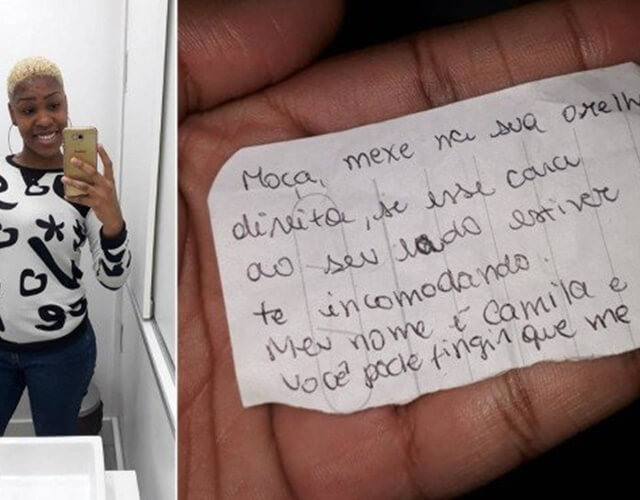 Moça, mexe na sua orelh
direita, se esse cara
ao seu lado estiver
te incomodando.
Meu nome é Camila e
você pode fingir que me